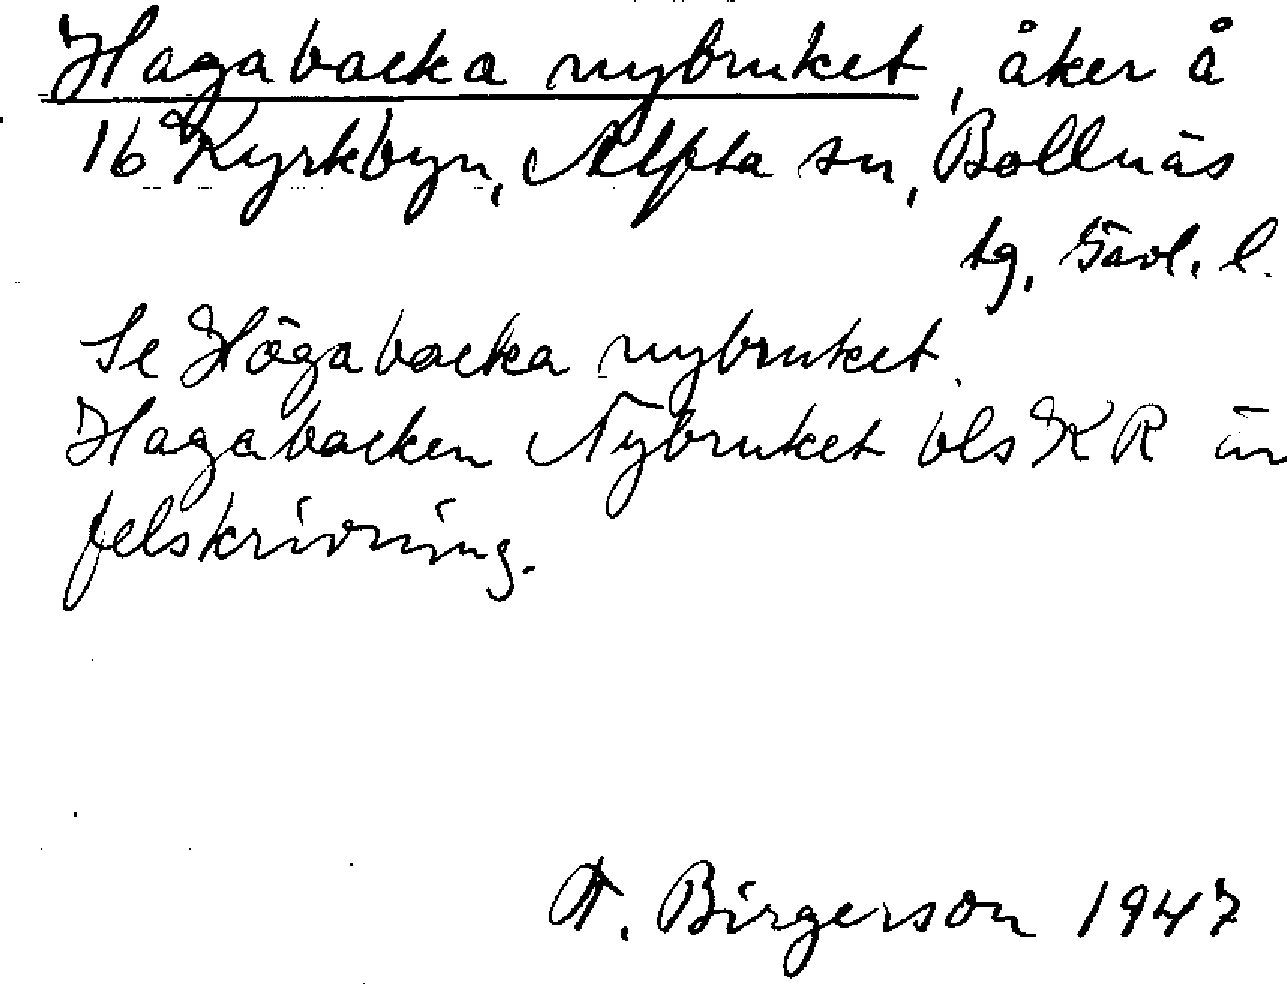 Hagabacka nybruket, åker å
16 Kyrkbyn, Alfta sn, Bollnäs
tg, Gävl. l.
Se Högabacka nybruket.
Hagabacken Nybruket bls KR är
felskrivning.
Birgerson 1947